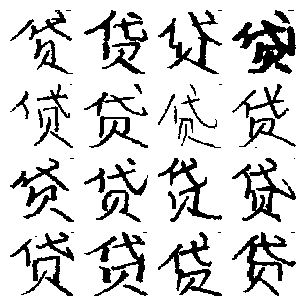 贷贷贷贷
贷贷贷贷
贷贷贷贷
贷贷贷贷